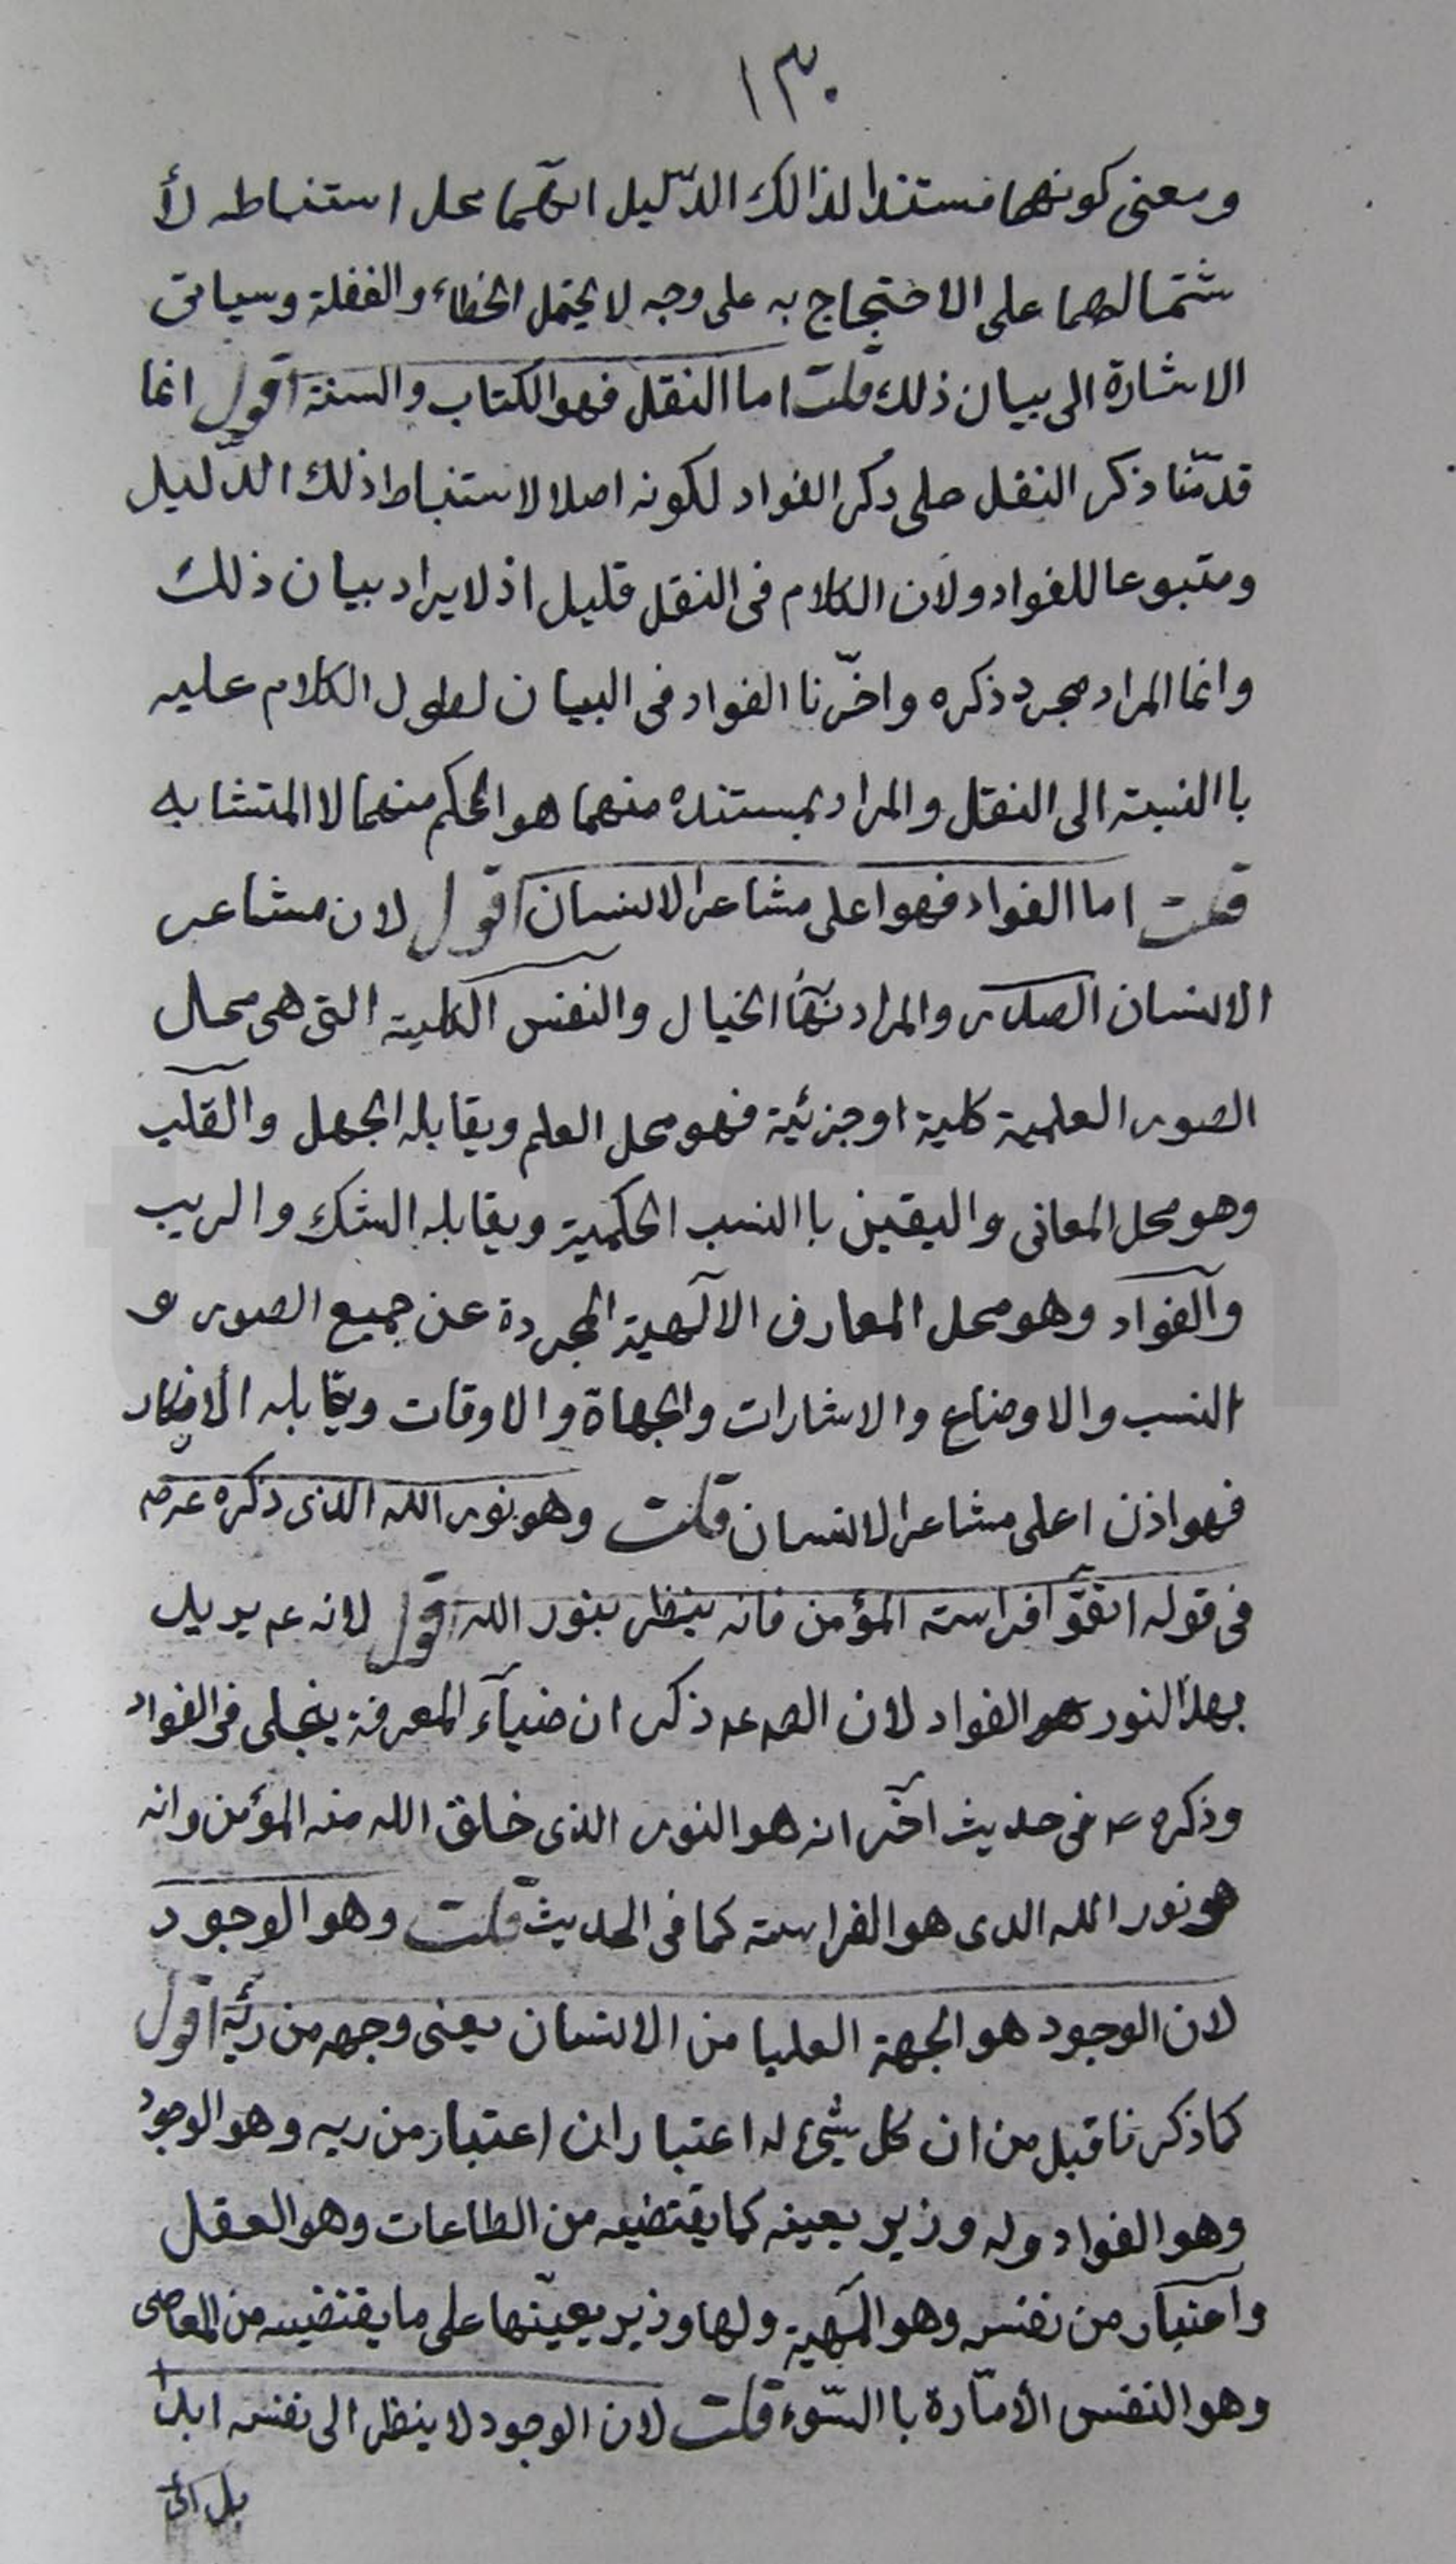 ١٣٠
ومعنى كونهما مستندا لذالك الدّليل انّهما محل استنباطه لأ
شتمالهما على الاحتجاج به على وجه لا يحتمل الخطاء والغفلة وسياتى
الاشارة الى بيان ذلك قلت اما النقل فهو الكتاب والسنة اقول انما
قدّمنا ذكر النقل على ذكر الفواد لكونه اصلا لاستنباط ذلك الدّليل
ومتبوعا للفواد ولان الكلام فى النقل قليل اذ لا يراد بيان ذلك
وانما المراد مجرد ذكره واخّرنا الفواد فى البيان لطول الكلام عليه
باالنسبة الى النقل والمراد بمستنده منهما هو المحكم منهما لا المتشابه
قلت اما الفواد فهو اعلى مشاعر الانسان اقول لان مشاعر
الانسان الصدر والمراد بها الخيال والنفس الكلية التى هى محال
الصور العلمية كلية او جزئية فهو محل العلم ويقابله الجهل والقلب
وهو محل المعانى واليقين باالنسب الحكمية ويقابله الشك والريب
والفواد وهو محل المعارف الآلهية المجردة عن جميع الصور و
النسب والاوضاع والاشارات والجهاة والاوقات ويقابله الأنكار
فهو اذن اعلى مشاعر الانسان قلت وهو نور الله الذى ذكره عرصم
فى قوله اتقوّا فراسة المؤمن فانه ينظر بنور الله اقول لانه عم يريد
بهذا النور هو الفواد لان الصم عم ذكر ان ضيآء المعرفة ينجلى فى الفواد
وذكره ع فى حديث آخر انه هو النور الذى خلق الله منه المؤمن وانه
هو نور الله الدى هو الفراسة كما فى الحديث قلت وهو الوجود
لان الوجود هو الجهة العليا من الانسان يعنى وجهه من ربّه اقول
كما ذكرنا قبل من ان كل شئ له اعتباران اعتبار من ربه وهو الوجود
وهو الفواد وله وزير يعينه كما يقتضيه من الطاعات وهو العقل
واعتبار من نفسه وهو المهية ولها وزير يعينها على ما يقتضيه من المعاصى
وهو النفس الأمّارة باالسّوء قلت لان الوجود لا ينظر الى نفسه ابدا
بل الى